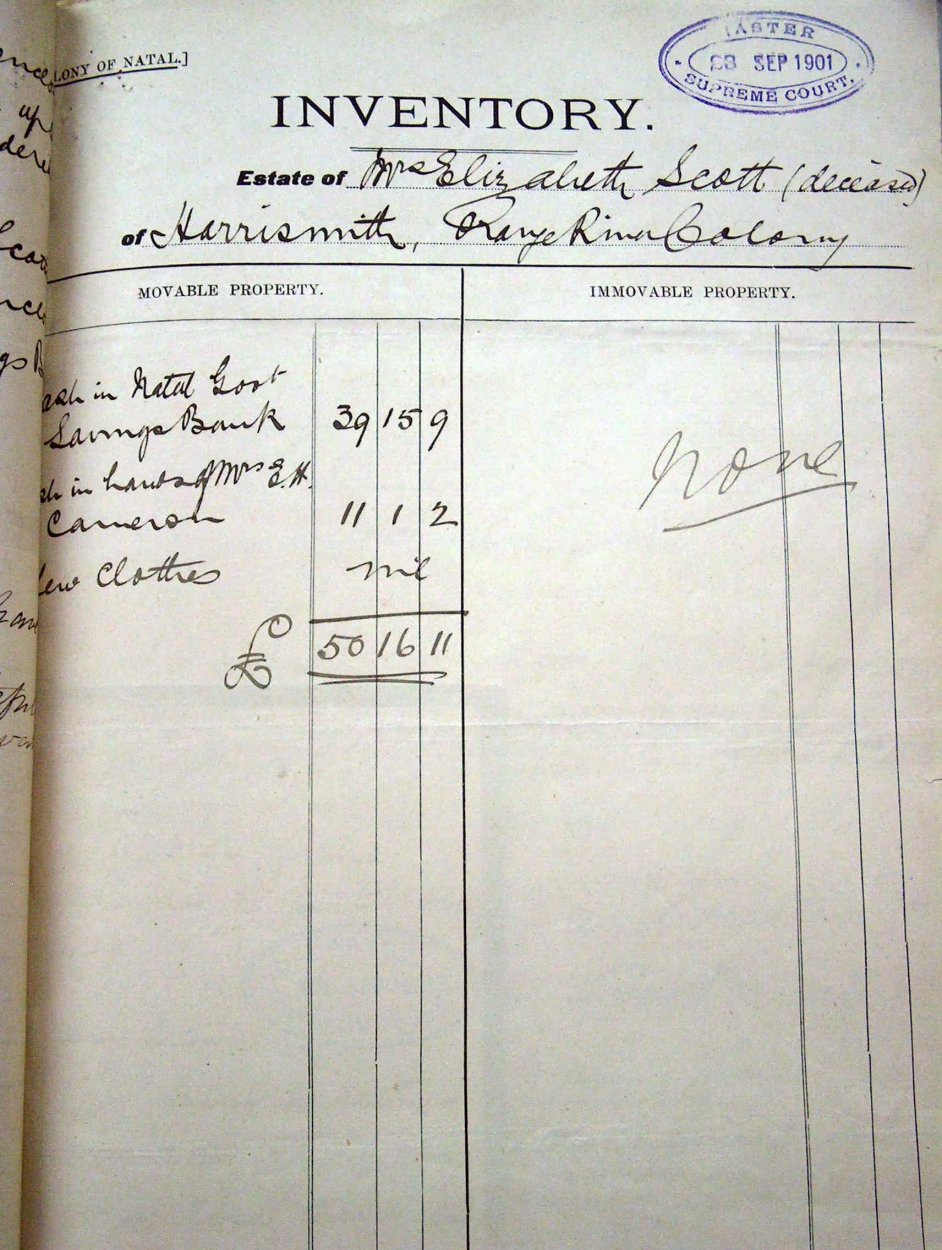 LONY OF NATAL.]
ASTER
23 SEP 1901
SUPREME COURT.
INVENTORY.
Estate of Mrs Elizabeth Scott (deceased)
of Harrismith, Orange River Colony
MOVABLE PROPERTY. IMMOVABLE PROPERTY.
ash in Natal Govt
Savings Bank 39 15 9
None
sh in hands of Mrs E. H.
Cameron 11 1 2
few Clothes nil
£ 50 16 11